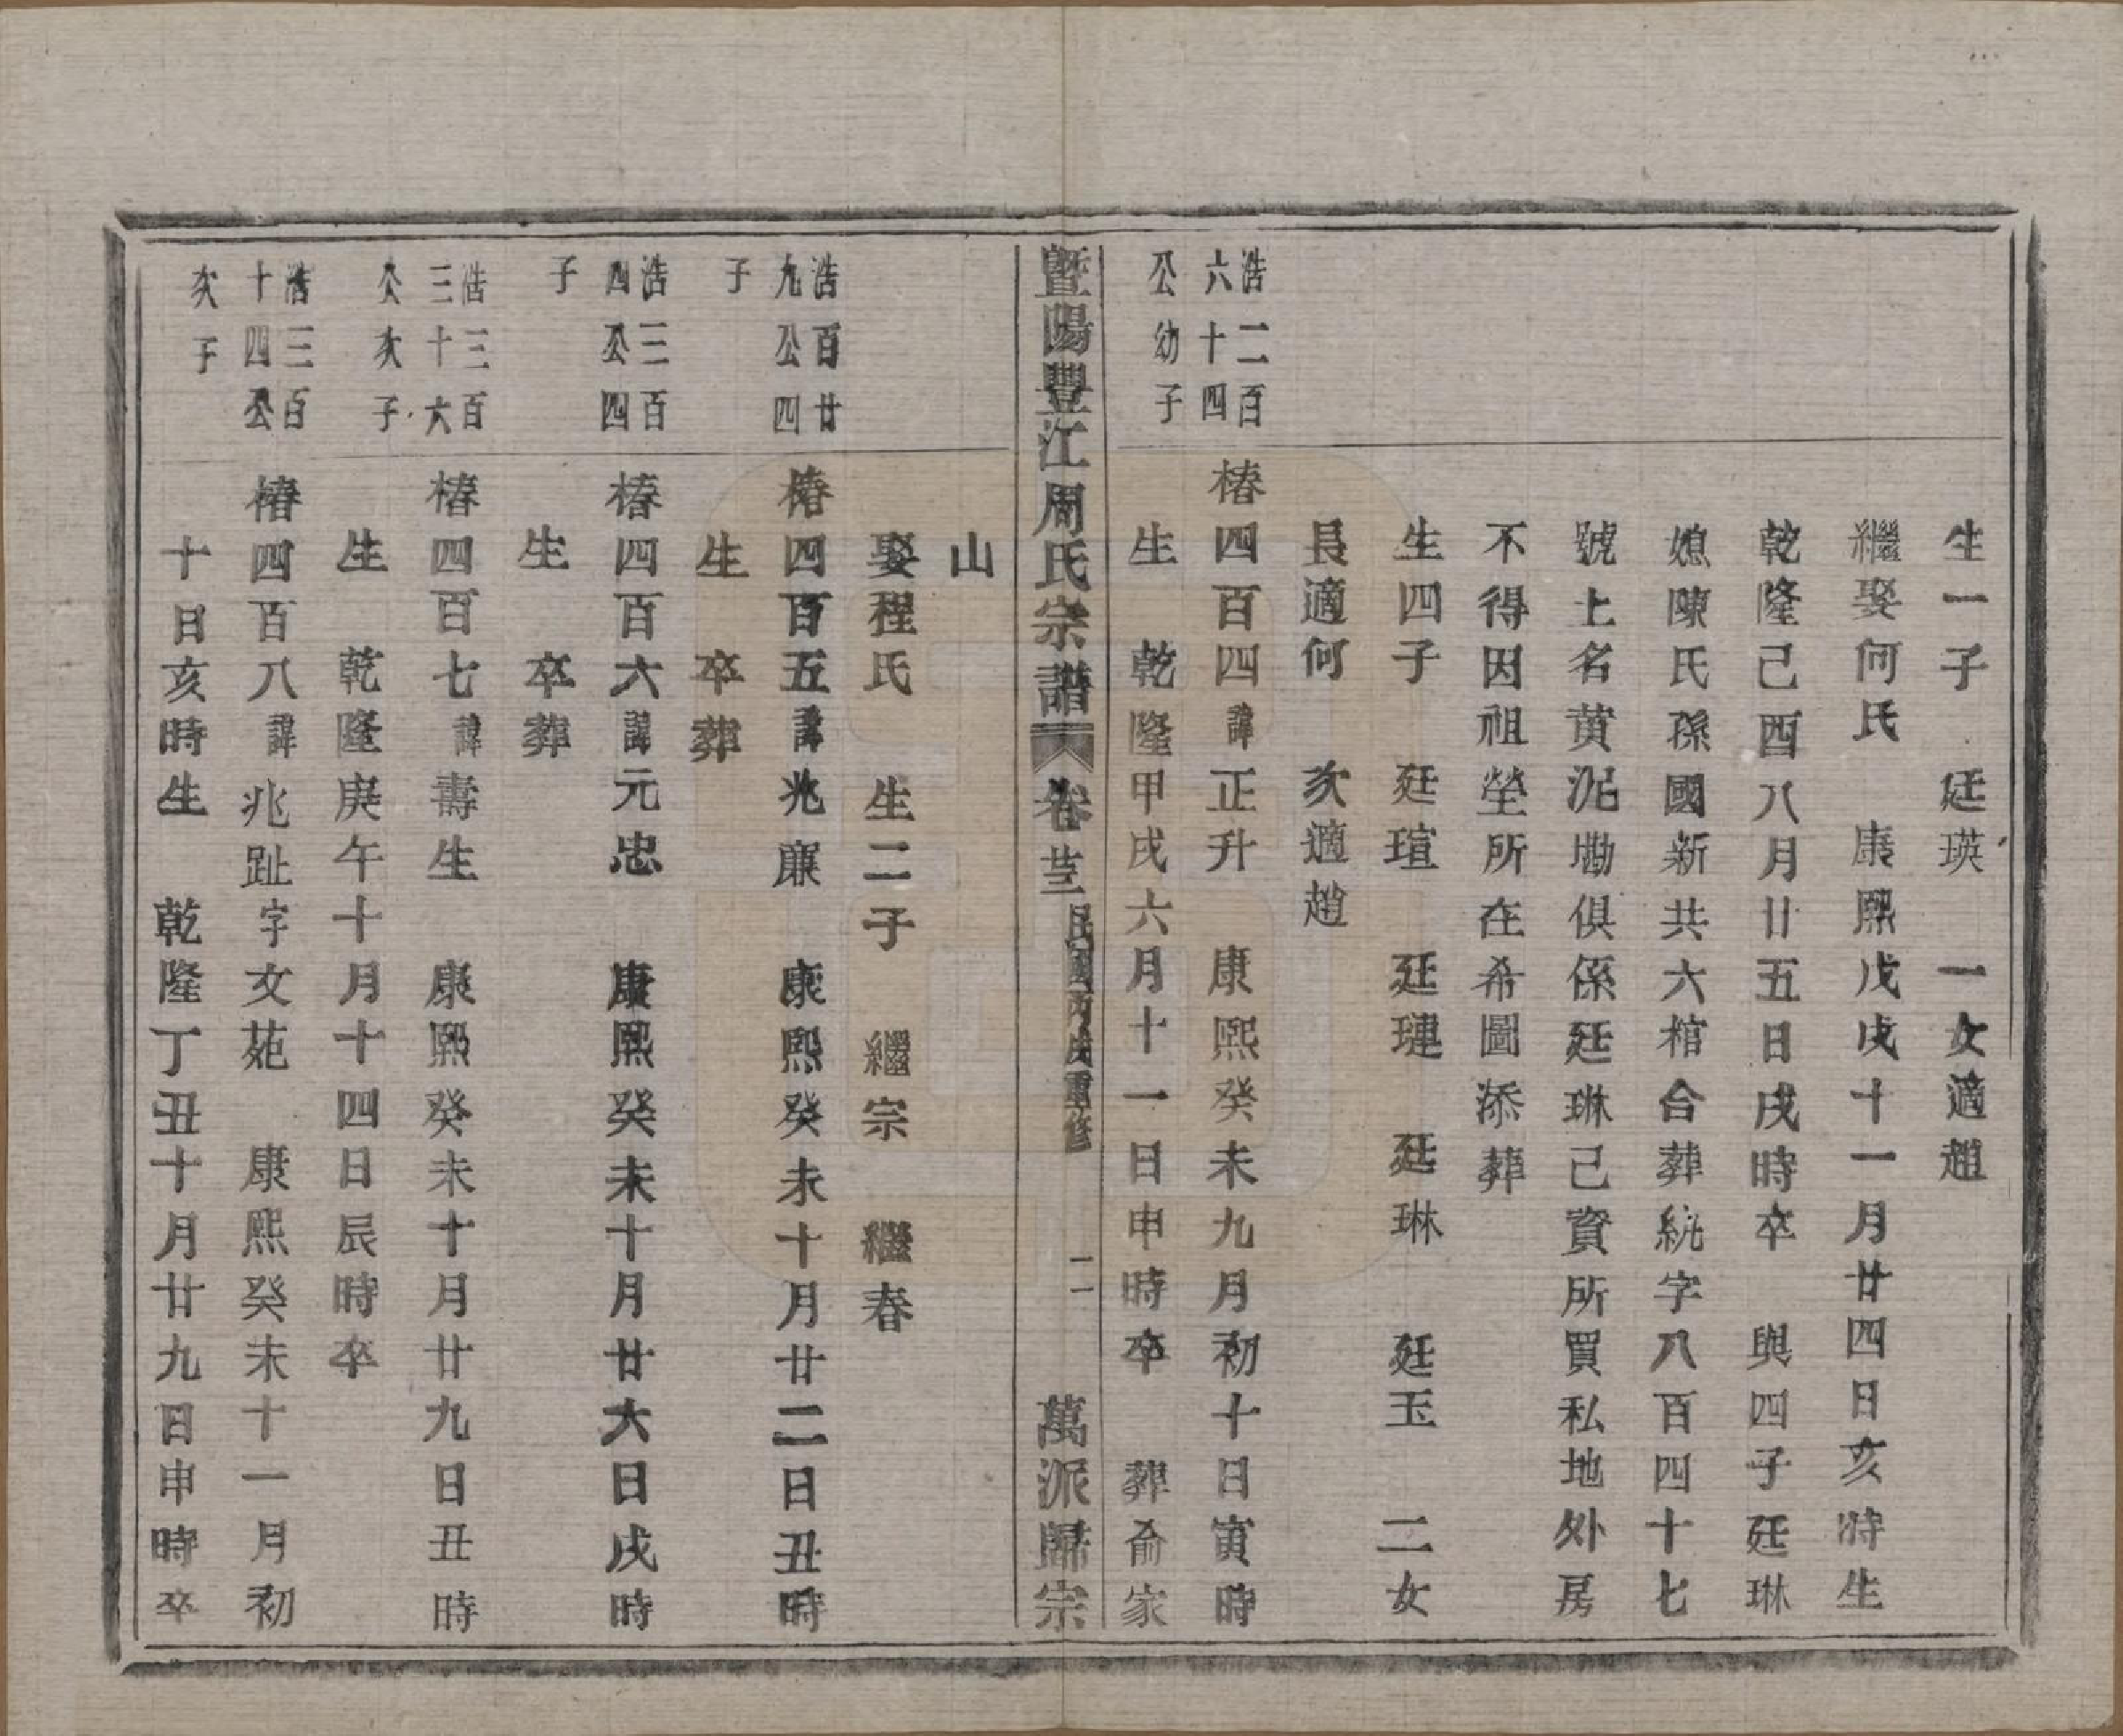 生一子 廷瑛 一女適趙
繼娶何氏 康熙戊戌十一月廿四日亥時生
乾隆己酉八月廿五日戌時卒 與四子廷琳
媳陳氏孫國新共六棺合葬統字八百四十七
號土名黄泥磡俱係廷琳己資所買私地外房
不得因祖塋所在希圖添葬
生四子 廷瑄 廷璉 廷琳 廷玉 二女
長適何 次適趙
浩二百六十四公幼子
椿四百四諱正升 康熙癸未九月初十日寅時
生 乾隆甲戌六月十一日申時卒 葬俞家
暨陽豐江周氏宗譜 卷 民國丙戌重修 二 萬派歸宗
山
娶程氏 生二子 繼宗 繼春
浩百廿九公四子
椿四百五諱兆廉 康熙癸未十月廿二日丑時
生 卒葬
浩三百四公四子
椿四百六諱元忠 康熙癸未十月廿六日戌時
生 卒葬
浩三百三十六公次子
椿四百七諱壽生 康熙癸未十月廿九日丑時
生 乾隆庚午十月十四日辰時卒
浩三百十四公次子
椿四百八諱兆趾字文苑 康熙癸未十一月初
十日亥時生 乾隆丁丑十月廿九日申時卒